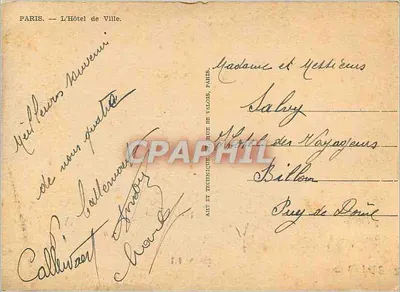 PARIS. — L'Hôtel de Ville.
Meilleurs souvenirs
de nous quatre
Callewaert
Callewaert
ART ET TECHNIQUE RUE DE VALOIS, PARIS.
CPAPHIL
Madame et Messieurs
Salvy
Hôtel des Voyageurs
Billom
Puy de Dôme